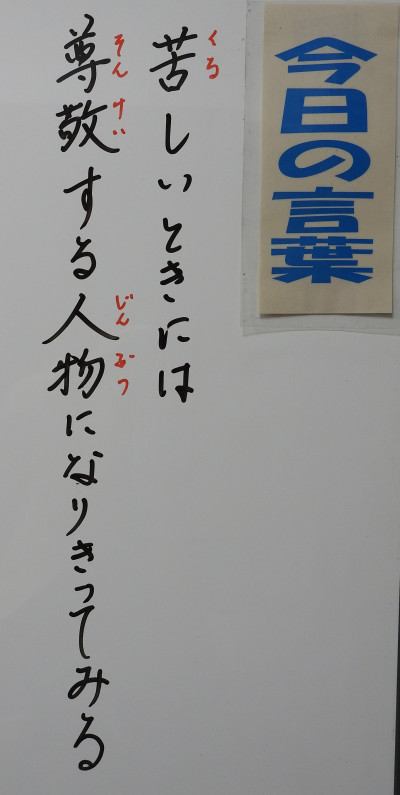 今日の言葉
苦しいときには
くる
尊敬する人物になりきってみる
そんけい
じんぶつ